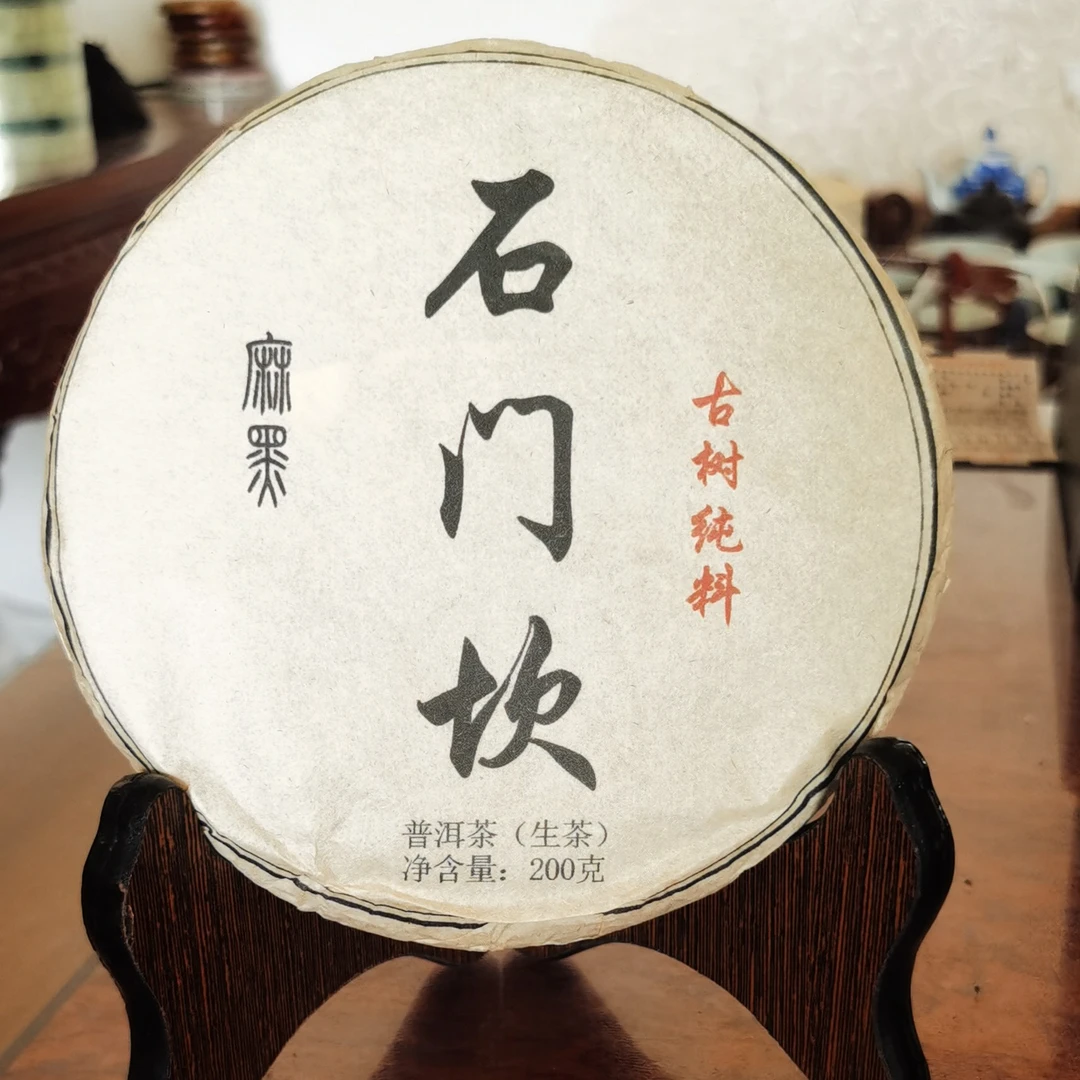 石门坎
麻黑
古树纯料
普洱茶（生茶）
净含量：200克